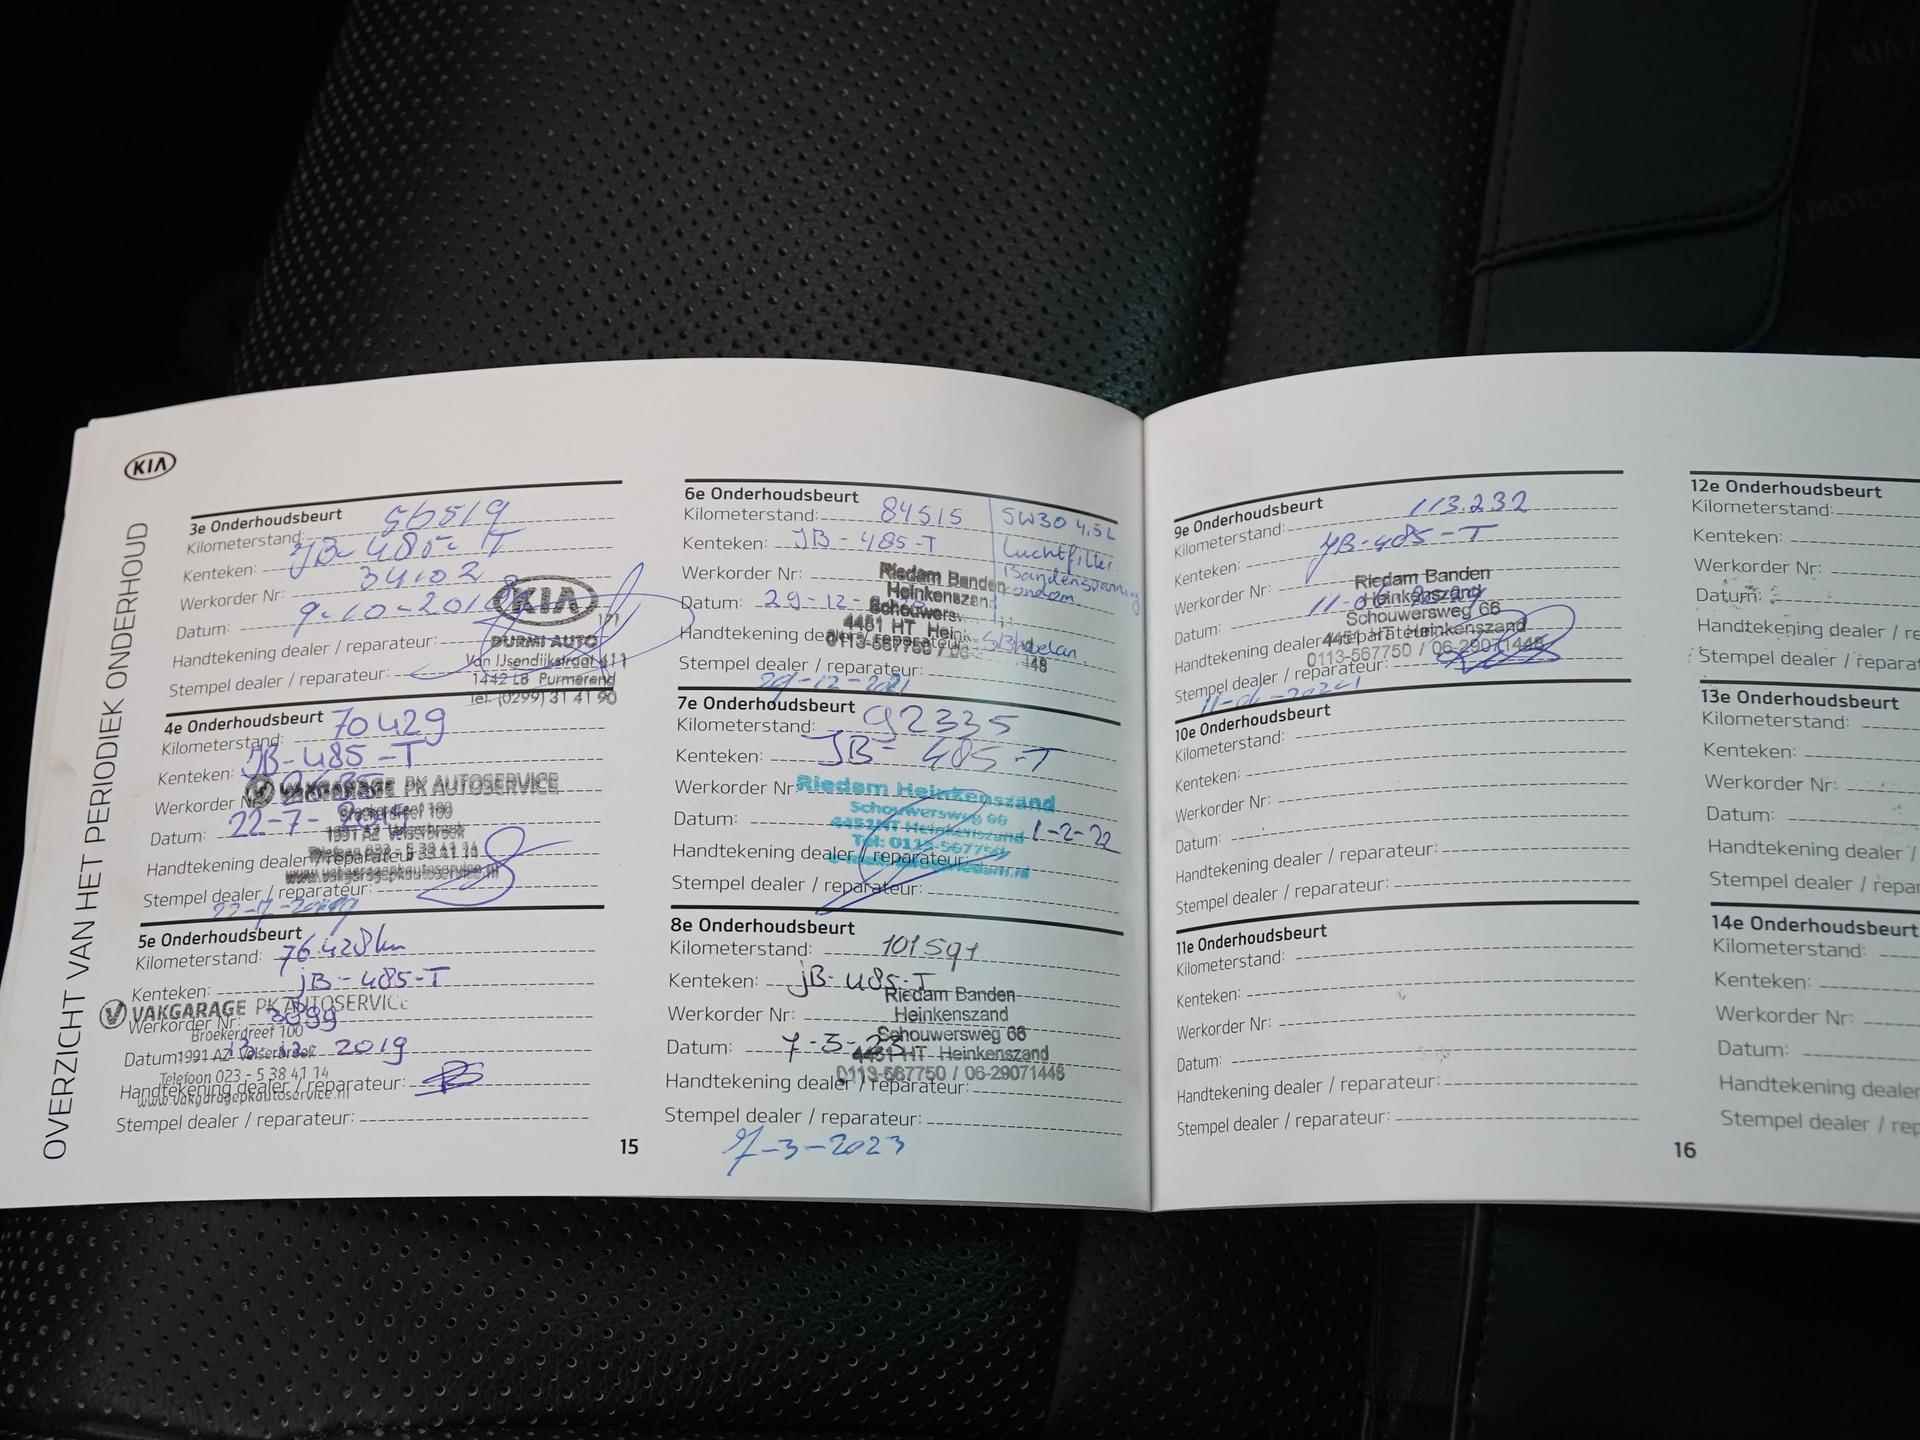 KIA
OVERZICHT VAN HET PERIODIEK ONDERHOUD
3e Onderhoudsbeurt
Kilometerstand: 56519
Kenteken: JB-485-T
Werkorder Nr: 34102
Datum: 9-10-2018
Handtekening dealer / reparateur:
Stempel dealer / reparateur:
KIA
DURMI AUTO
Van IJsendijkstraat 411
1442 LB Purmerend
Tel. (0299) 31 41 90
4e Onderhoudsbeurt
Kilometerstand: 70429
Kenteken: JB-485-T
Werkorder Nr:
Datum: 22-7-
Handtekening dealer / reparateur:
Stempel dealer / reparateur:
VAKGARAGE PK AUTOSERVICE
Broekerdreef 100
1991 AZ Velserbroek
Telefoon 023 - 5 38 41 14
www.vakgaragepkautoservice.nl
22-7-
5e Onderhoudsbeurt
Kilometerstand: 76.428 km
Kenteken: JB-485-T
Werkorder Nr:
Datum: 2019
Handtekening dealer / reparateur:
Stempel dealer / reparateur:
VAKGARAGE PK AUTOSERVICE
Broekerdreef 100
1991 AZ Velserbroek
Telefoon 023 - 5 38 41 14
www.vakgaragepkautoservice.nl
15
6e Onderhoudsbeurt
Kilometerstand: 84515
Kenteken: JB-485-T
Werkorder Nr:
Datum: 29-12-
Handtekening dealer / reparateur:
Stempel dealer / reparateur:
5W30 4,5L
Luchtfilter
Bandenspanning
rondom
Riedam Banden
Heinkenszand
29-12-2021
7e Onderhoudsbeurt
Kilometerstand: 92335
Kenteken: JB-485-T
Werkorder Nr:
Datum: 1-2-22
Handtekening dealer / reparateur:
Stempel dealer / reparateur:
Riedam Heinkenszand
Schouwersweg 66
4451HT Heinkenszand
Tel: 0113-567750
8e Onderhoudsbeurt
Kilometerstand: 101591
Kenteken: JB-485-T
Werkorder Nr:
Datum: 7-3-23
Handtekening dealer / reparateur:
Stempel dealer / reparateur:
Riedam Banden
Heinkenszand
Schouwersweg 66
4451 HT Heinkenszand
0113-567750 / 06-29071448
7-3-2023
9e Onderhoudsbeurt
Kilometerstand: 113.232
Kenteken: JB-485-T
Werkorder Nr:
Datum:
Handtekening dealer / reparateur:
Stempel dealer / reparateur:
Riedam Banden
Heinkenszand
Schouwersweg 66
4451 HT Heinkenszand
0113-567750 / 06-29071448
10e Onderhoudsbeurt
Kilometerstand:
Kenteken:
Werkorder Nr:
Datum:
Handtekening dealer / reparateur:
Stempel dealer / reparateur:
11e Onderhoudsbeurt
Kilometerstand:
Kenteken:
Werkorder Nr:
Datum:
Handtekening dealer / reparateur:
Stempel dealer / reparateur:
16
12e Onderhoudsbeurt
Kilometerstand:
Kenteken:
Werkorder Nr:
Datum:
Handtekening dealer / re
Stempel dealer / repara
13e Onderhoudsbeurt
Kilometerstand:
Kenteken:
Werkorder Nr:
Datum:
Handtekening dealer /
Stempel dealer / repar
14e Onderhoudsbeurt
Kilometerstand:
Kenteken:
Werkorder Nr:
Datum:
Handtekening dealer
Stempel dealer / rep